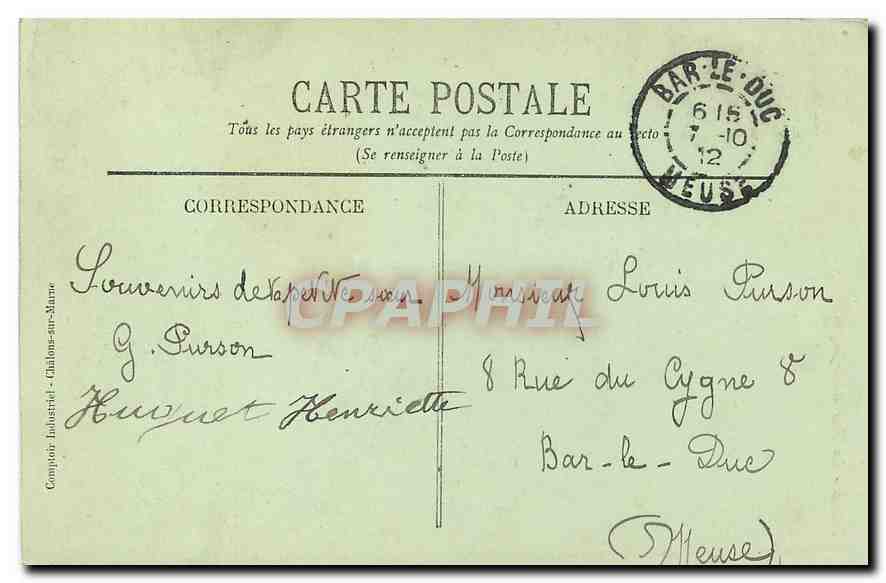 CARTE POSTALE
Tous les pays étrangers n'acceptent pas la Correspondance au recto
(Se renseigner à la Poste)
BAR-LE-DUC
6 15
7 -10
12
MEUSE
CORRESPONDANCE
ADRESSE
Souvenirs de ta petite sœur
G. Purson
Huguet Henriette
Monsieur Louis Purson
8 Rue du Cygne 8
Bar-le-Duc
(Meuse)
Comptoir Industriel - Châlons-sur-Marne
CPAPHIL